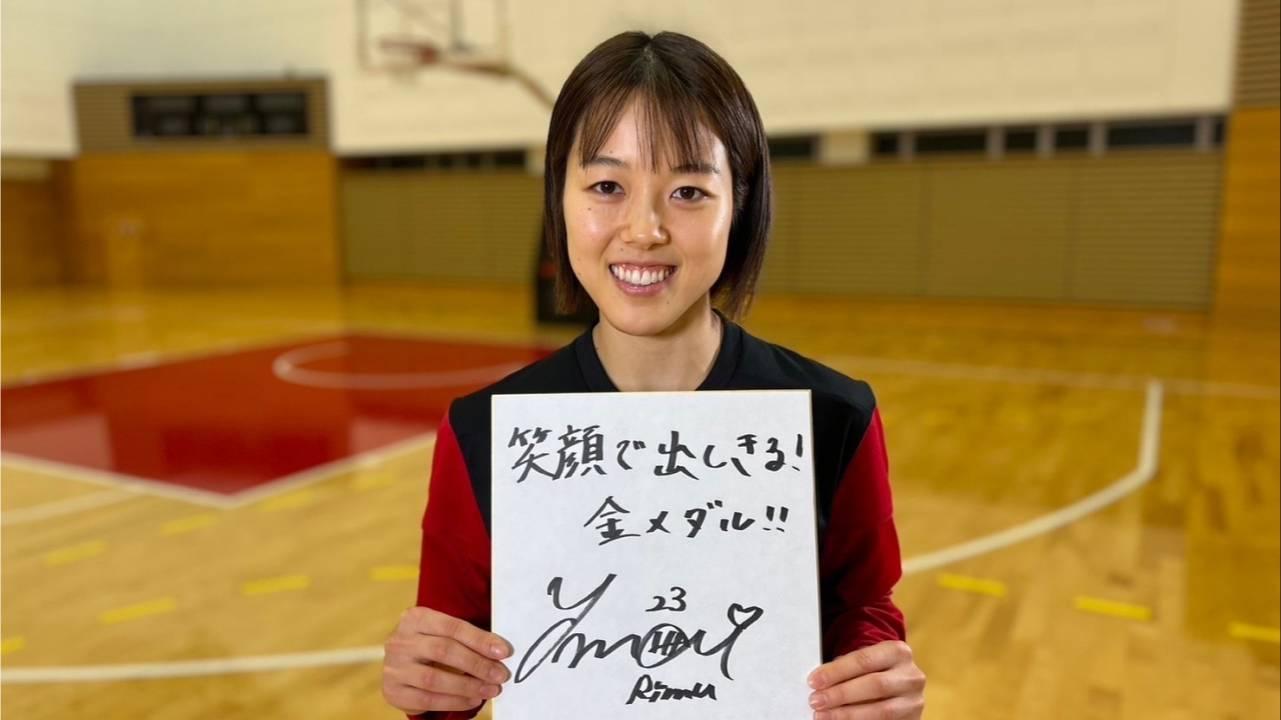 笑顔で出しきる!
金メダル!!
23
Rimu